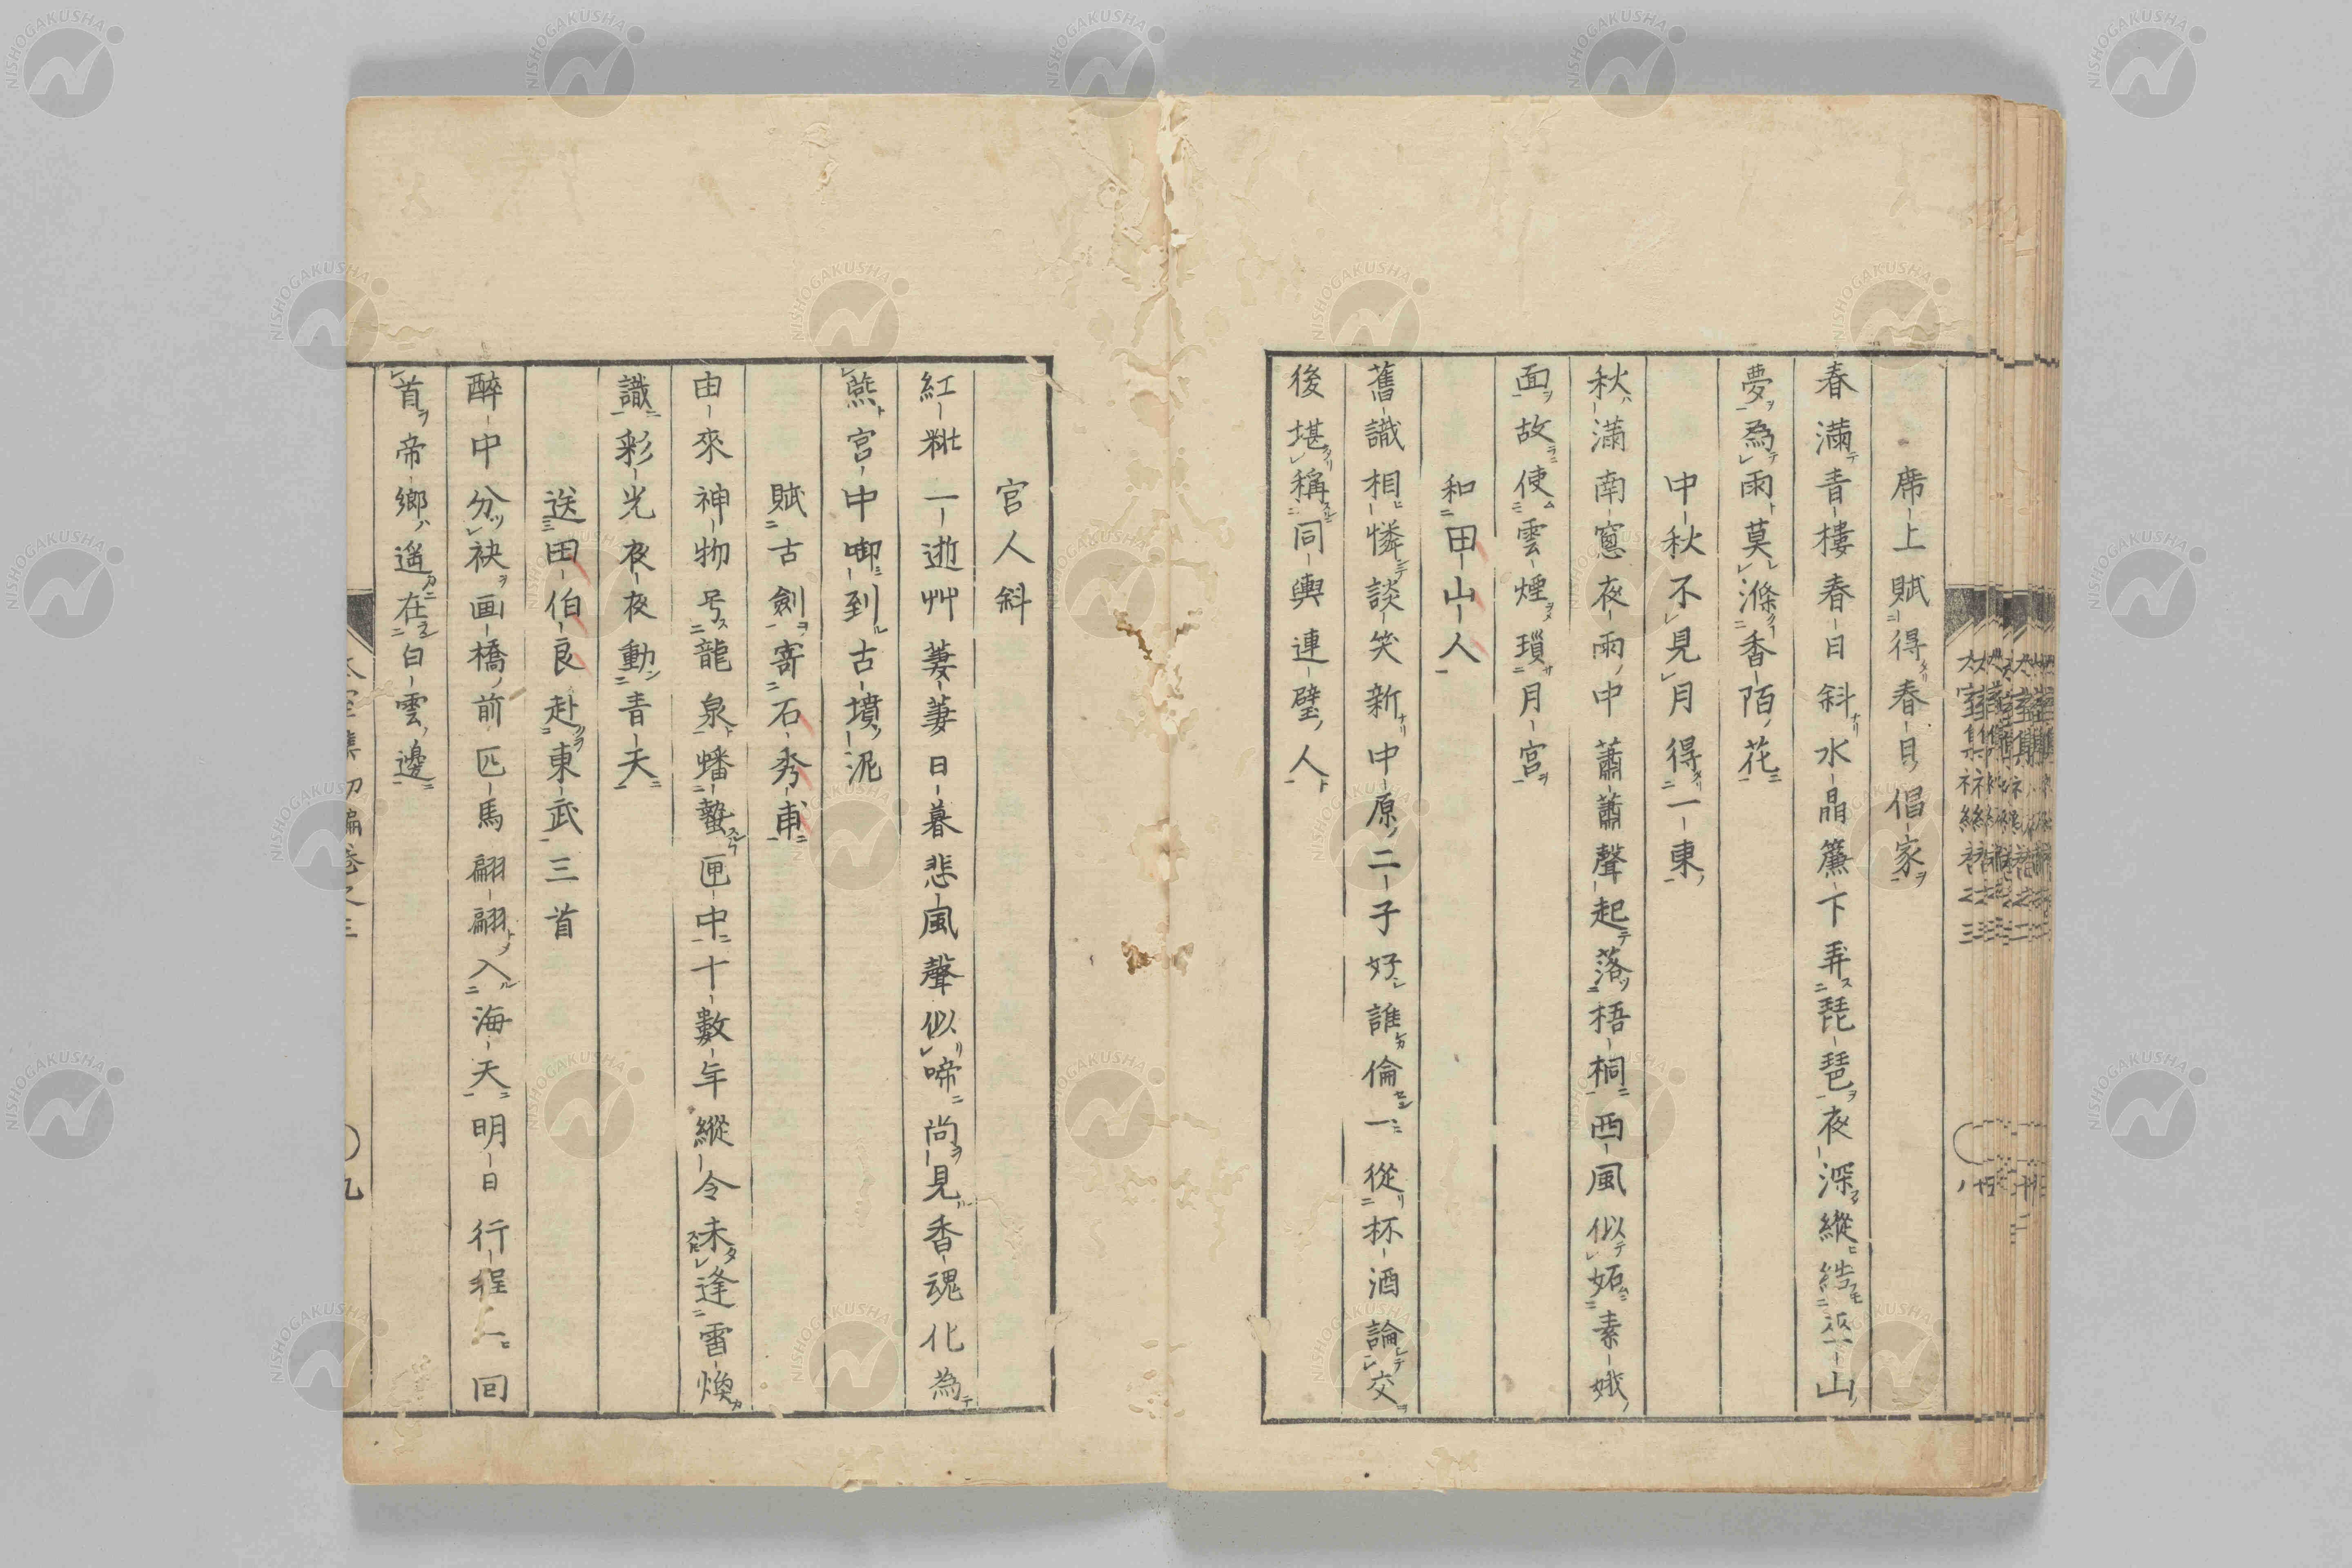 席上賦得春日倡家
春滿青樓春日斜水晶簾下弄琵琶夜深縱結巫山
夢為雨莫滌香陌花
中秋不見月得一東
秋滿南窓夜雨中蕭蕭聲起落梧桐西風似妬素娥
面故使雲煙瑣月宮
和田山人
舊識相憐談笑新中原二子好誰倫一從杯酒論交
後堪稱同輿連璧人
宮人斜
紅粃一逝艸萋萋日暮悲風聲似啼尚見香魂化為
燕宮中啣到古墳泥
賦古劍寄石秀甫
由來神物号龍泉蟠蟄匣中十數年縱令未逢雷煥
識彩光夜夜動青天
送田伯良赴東武三首
醉中分袂画橋前匹馬翩翩入海天明日行程回
首帝鄉遥在白雲邊
太室集初編卷之三
九
NISHOGAKUSHA